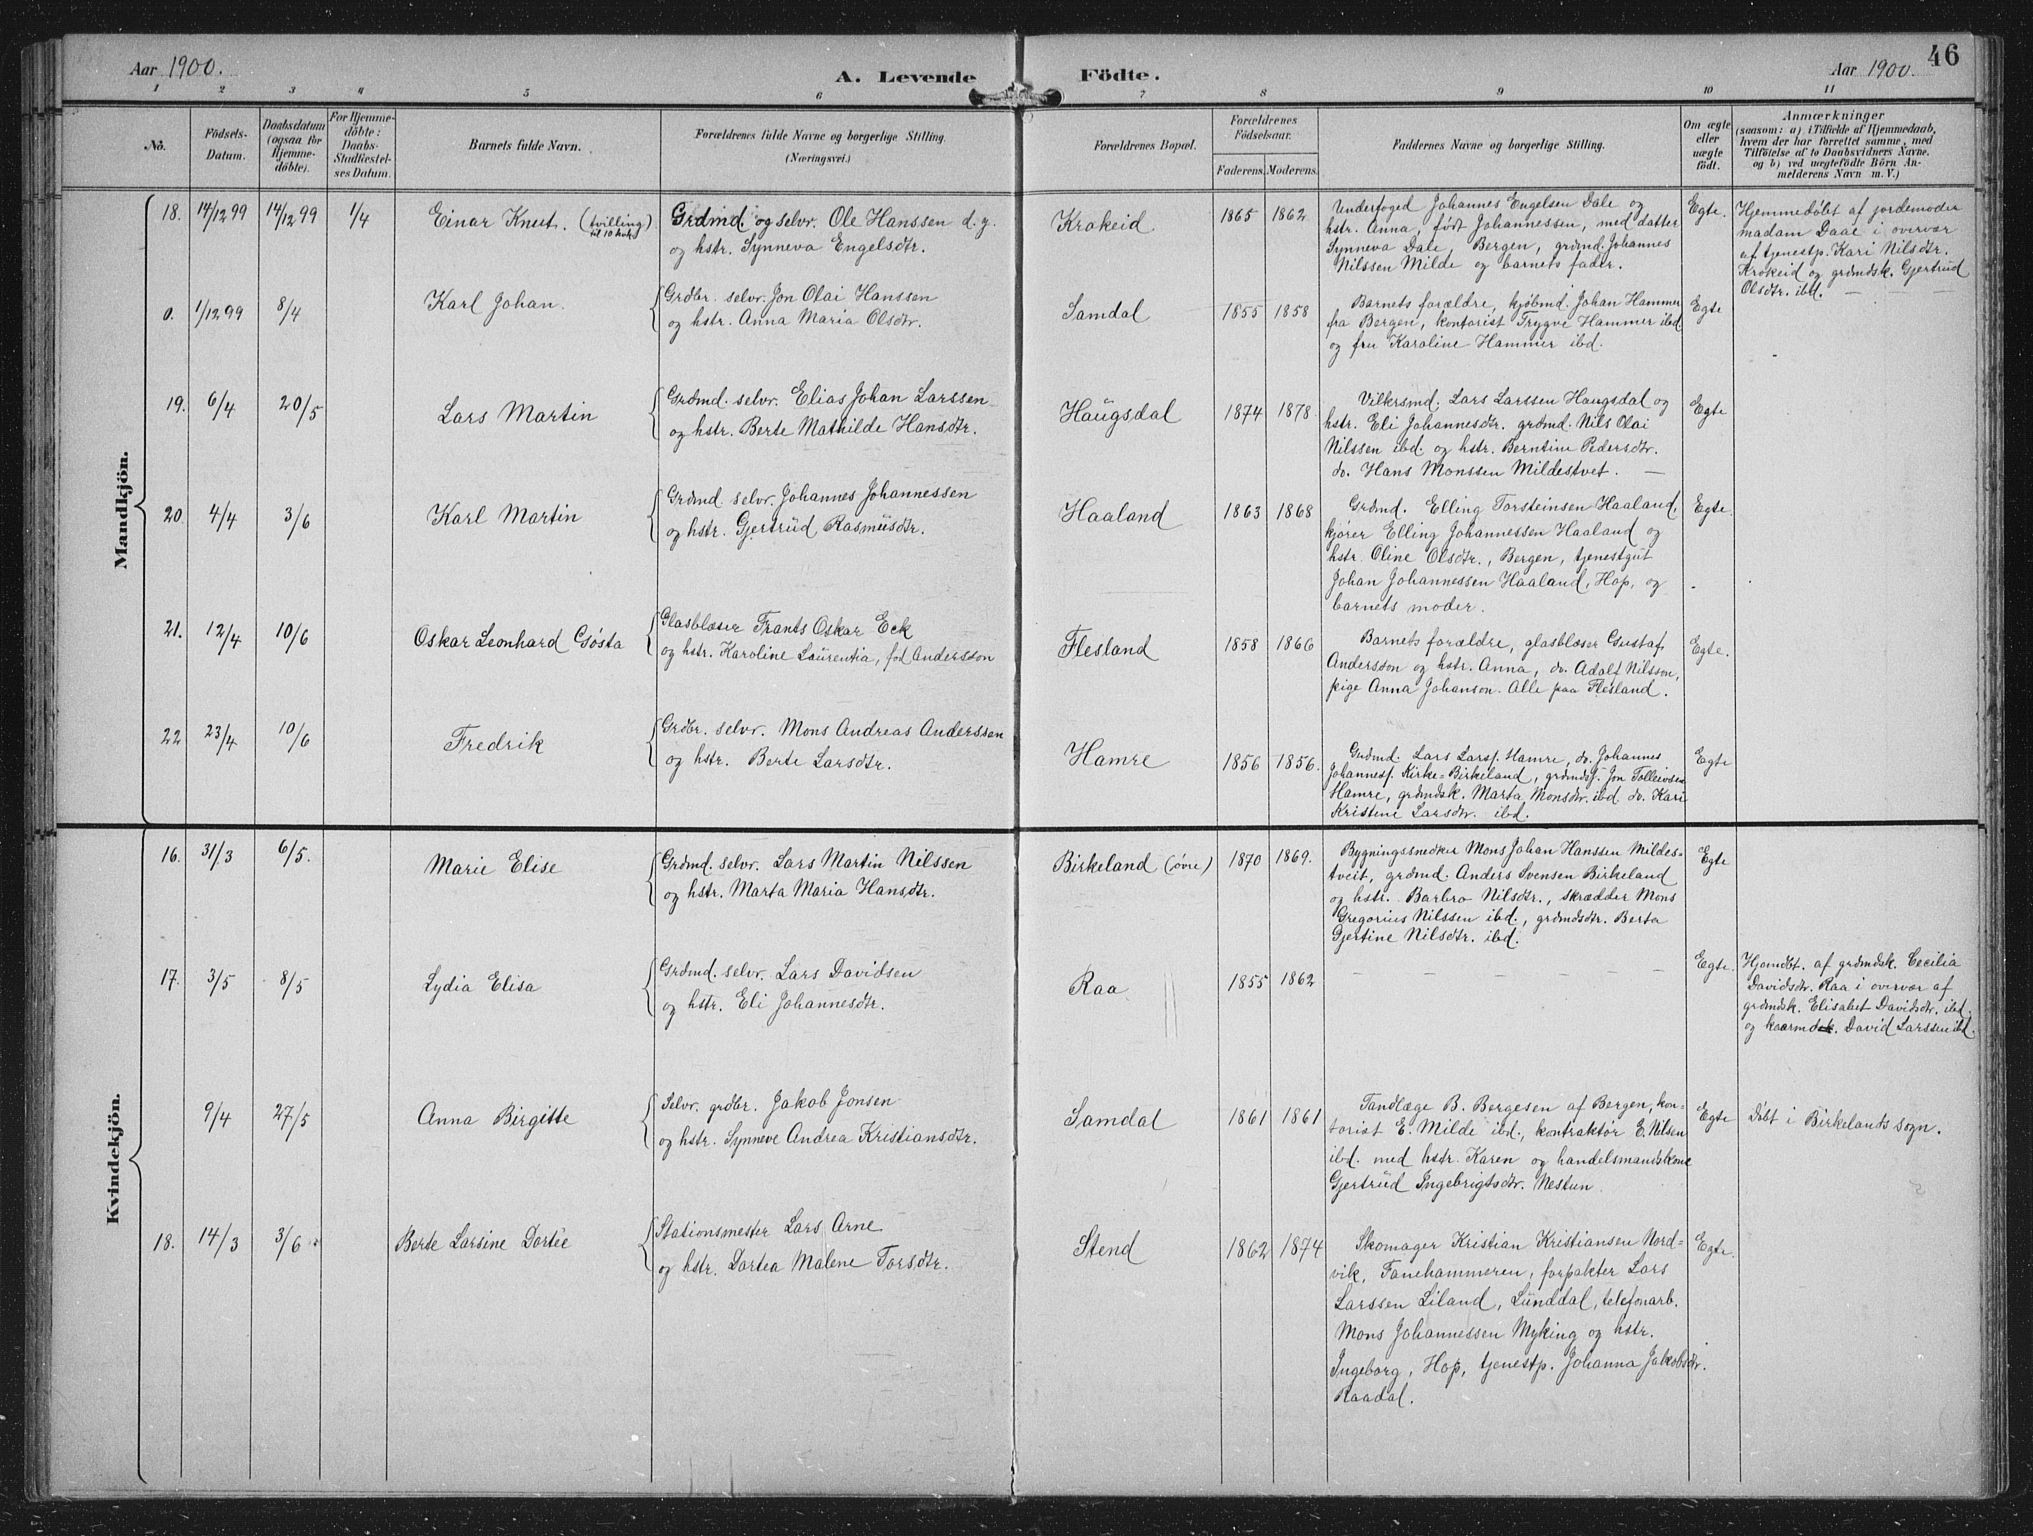 Aar 1900.
A. Levende Födte.
Aar 1900.
46
1 2 3 4 5 6 7 8 9 10 11
No.
Födsels-
Datum.
Daabsdatum
(ogsaa for
Hjemme-
döbte).
For Hjemme-
döbte:
Daabs-
Stadfæstel-
ses Datum.
Barnets fulde Navn.
Forældrenes fulde Navne og borgerlige Stilling.
(Næringsvei.)
Forældrenes Bopæl.
Forældrenes
Födselsaar.
Faderens. Moderens.
Faddernes Navne og borgerlige Stilling.
Om ægte
eller
uægte
födt.
Anmærkninger
(saasom: a) i Tilfælde af Hjemmedaab,
hvem der har forrettet samme, med
Tilföielse af to Daabsvidners Navne.
og b) ved uægtefödte Börn An-
melderens Navn m. V.)
Mandkjön.
18. 14/12 99 14/12 99 1/4 Einar Knut. (tvilling)
Grdmd. og selv. Ole Hanssen d. y.
og hstr. Synneva Engelsdtr.
Krokeid
1865 1862
Underfoged Johannes Engelsen Dale og
hstr. Anna, født Johannessen, med datter
Synneva Dale, Bergen, grdmd. Johannes
Nilssen Milde og barnets fader.
Egte.
Hjemmedøbt af jordemoder
madam Daae i overvær
af tjenestp. Kari Nilsdtr.
Krokeid og grdmdsk. Gjertrud
Olsdtr. ibd.
0. 1/12 99 8/4 Karl Johan.
Grdbr. selv. Jon Olai Hanssen
og hstr. Anna Maria Olsdtr.
Samdal
1855 1858
Barnets forældre, kjøbmd. Johan Hammer
fra Bergen, kontorist Trygve Hammer ibd
og fru Karoline Hammer ibd.
Egte
19. 6/4 20/5 Lars Martin
Grdmd. selvr. Elias Johan Larssen
og hstr. Berte Mathilde Hansdtr.
Haugsdal
1874 1878.
Vilkersmd. Lars Larssen Haugsdal og
hstr. Eli Johannesdtr. grdmd. Nils Olai
Nilssen ibd. og hstr. Berntine Pedersdtr.
do. Hans Monssen Mildestvet.
Egte
20. 4/4 3/6 Karl Martin
Grdmd. selvr. Johannes Johannessen
og hstr. Gjertrud Rasmusdtr.
Haaland
1863 1868
Grdmd. Elling Torsteinsen Haaland,
kjører Elling Johannessen Haaland og
hstr. Oline Olsdtr., Bergen, tjenestgut
Johan Johannessen Haaland, Hop, og
barnets moder.
Egte.
21. 12/4 10/6 Oskar Leonhard Gösta
Glasblæser Frants Oskar Eck
og hstr. Karoline Laurentia, fød Andersson
Flesland
1858 1866
Barnets forældre, glasblæser Gustaf
Andersson og hstr. Anna, do. Adolf Nilsson,
pige Anna Johanson. Alle paa Flesland.
Egte.
22 23/4 10/6 Fredrik
Grdbr. selvr. Mons Andreas Anderssen
og hstr. Berte Larsdtr.
Hamre
1856 1856.
Grdmd. Lars Larss. Hamre, do. Johannes
Johanness. Kirke-Birkeland, grdmdss. Jon Tolleivsen
Hamre, grdmdsk. Marta Monsdtr. ibd. do. Kari
Kristine Larsdtr. ibd.
Egte
Kvindekjön.
16. 31/3 6/5. Marie Elise
Grdmd. selvr. Lars Martin Nilssen
og hstr. Marta Maria Hansdtr.
Birkeland (øvre)
1870 1869.
Bygningssnedker Mons Johan Hanssen Mildes-
tveit, grdmd. Anders Svensen Birkeland
og hstr. Barbro Nilsdtr., skrædder Mons
Gregorius Nilssen ibd., grdmdsdtr. Berta
Gjertine Nilsdtr. ibd.
Egte
17. 3/5 8/5 Lydia Elisa
Grdmd. selvr. Lars Davidsen
og hstr. Eli Johannesdtr.
Raa
1855 1862
Egte.
Hjemdbt. af grdmdsk. Cecilia
Davidsdtr. Raa i overvær af
grdmdsk. Elisabet Davidsdtr. ibd.
og David Larssen ibd.
9/4 27/5 Anna Birgitte
Selvr. grdbr. Jakob Jonsen
og hstr. Synneve Andrea Kristiansdtr.
Samdal
1861 1861
Tandlæge B. Bergesen af Bergen, kon-
torist E. Milde ibd., kontraktør E. Nilsen
ibd. med hstr. Karen og handelsmandskone
Gjertrud Ingebrigtsdtr. Nestun.
Egte
Døbt i Birkelands sogn.
18. 14/3 3/6 Berte Larsine Dortee
Stationsmester Lars Arne
og hstr. Dortea Malene Torsdtr.
Stend
1862 1874
Skomager Kristian Kristiansen Nord-
vik, Fanehammeren, forpakter Lars
Larssen Liland, Lunddal, telefonarb.
Mons Johannessen Myking og hstr.
Ingeborg, Hop, tjenestp. Johanna Jakobsdtr.
Raadal.
Egte.